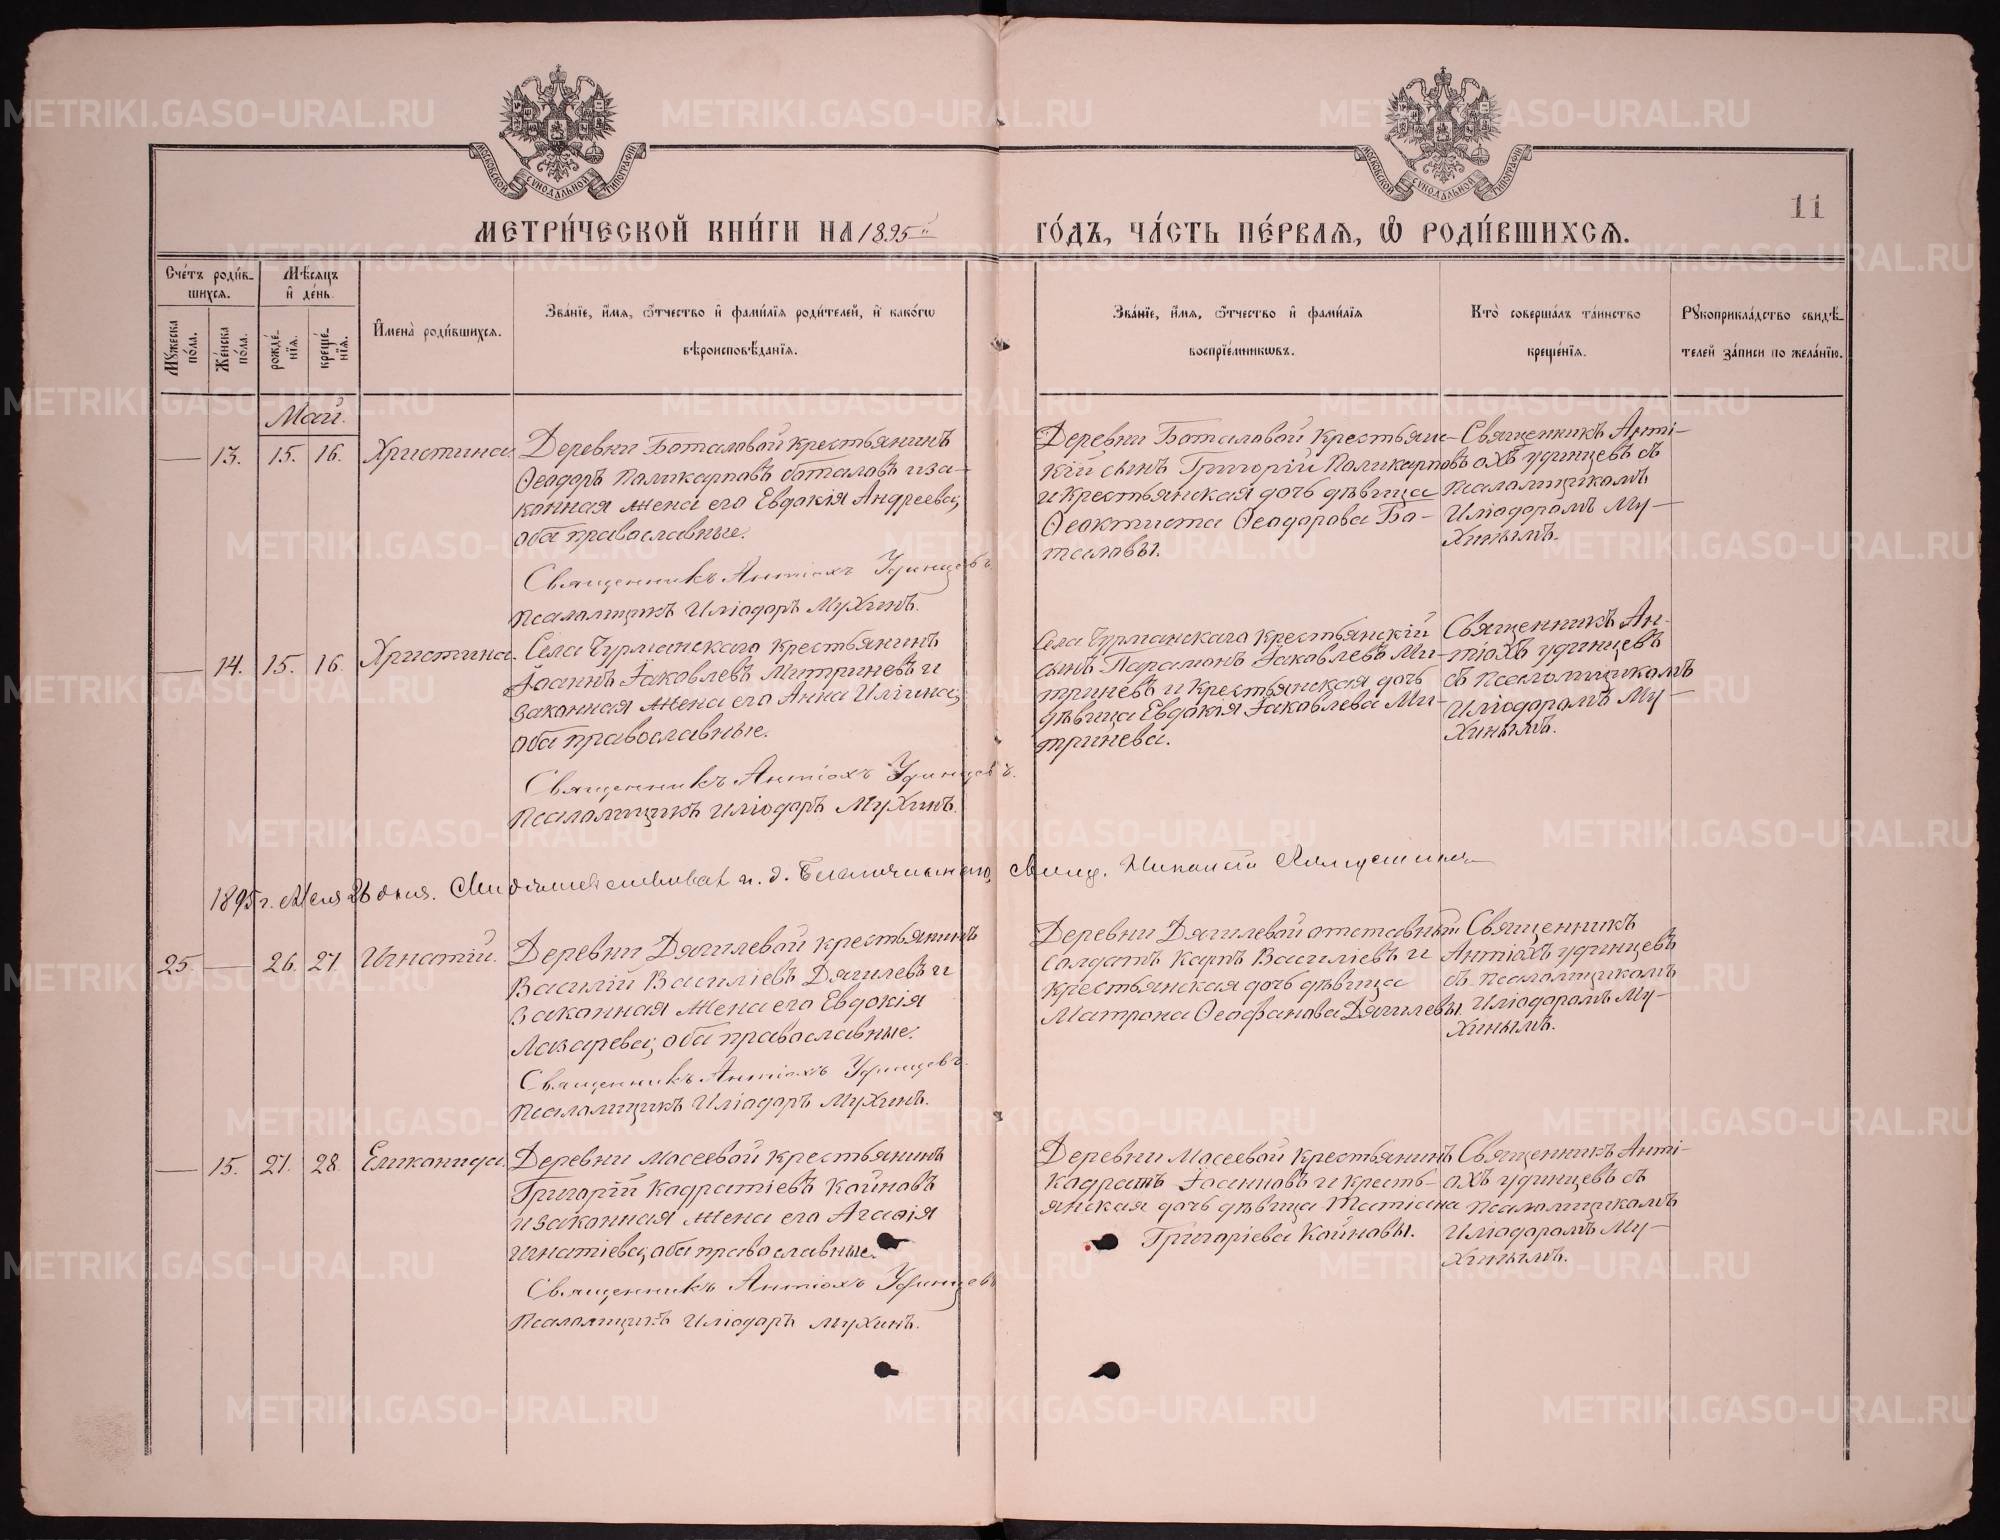 МОСКОВСКОЙ СѴНОДАЛЬНОЙ ТИПОГРАФІИ
МОСКОВСКОЙ СѴНОДАЛЬНОЙ ТИПОГРАФІИ
11
МЕТРИ́ЧЕСКОЙ КНИ́ГИ НА 1895й ГО́ДЪ, ЧА́СТЬ ПЕ́РВАЯ, Ѡ҆ РОДИ́ВШИХСЯ.
Сче́тъ роди́в-
шихся.
Мѣ́сяцъ
и҆ де́нь.
Мꙋ́жеска по́ла.
Же́нска по́ла.
рожде́-нїя.
креще́-нїя.
И҆мена̀ роди́вшихся.
Зва́нїе, и҆́мя, ѻ҆́тчество и҆ фами́лїя роди́телей, и҆ како́гѡ
вѣроисповѣ́данїя.
Зва́нїе, и҆́мя, ѻ҆́тчество и҆ фами́лїя
воспрїе́мникѡвъ.
Кто̀ соверша́лъ та́инство
креще́нїя.
Рꙋкоприкла́дство свидѣ́-
телей за́писи по жела́нїю.
Май.
— 13. 15. 16. Христина.
Деревни Боталовой крестьянинъ
Ѳеодоръ Поликарповъ боталовъ и за-
конная жена его Евдокія Андреева,
оба православные.
Священникъ Антіохъ Удинцевъ.
Псаломщикъ Иліодоръ Мухинъ.
Деревни Боталовой крестьян-
скій сынъ Григорій Поликарповъ
и крестьянская дочь дѣвица
Ѳеоктиста Ѳеодорова Бо-
таловы.
Священникъ Анті-
охъ удинцевъ съ
псаломщикомъ
Иліодоромъ Му-
хинымъ.
— 14. 15. 16. Христина.
Села Чурманскаго крестьянинъ
Іоаннъ Іаковлевъ Митриневъ и
законная жена его Анна Иліина,
оба православные.
Священникъ Антіохъ Удинцевъ.
Псаломщикъ Иліодоръ Мухинъ.
Села Чурманскаго крестьянскій
сынъ Парамонъ Іаковлевъ Ми-
триневъ и крестьянская дочь
дѣвица Евдокія Іаковлева Ми-
тринева.
Священникъ Ан-
тіохъ удинцевъ
съ псаломщикомъ
Иліодоромъ Му-
хинымъ.
1895 г. Мая 26 дня. Свидѣтельствовалъ и. д. Благочиннаго, Свящ. Николай
25. — 26. 27. Игнатій.
Деревни Дягилевой крестьянинъ
Василій Василіевъ Дягилевъ и
законная жена его Евдокія
Лазарева, оба православные.
Священникъ Антіохъ Удинцевъ.
Псаломщикъ Иліодоръ Мухинъ.
Деревни Дягилевой отставный
Солдатъ Карпъ Василіевъ и
крестьянская дочь дѣвица
Матрона Ѳеофанова Дягилевы.
Священникъ
Антіохъ удинцевъ
съ псаломщикомъ
Иліодоромъ Му-
хинымъ.
— 15. 27. 28. Еликонида.
Деревни Мосеевой крестьянинъ
Григорій Кодратіевъ Койновъ
и законная жена его Агаѳія
Игнатіева, оба православные.
Священникъ Антіохъ Удинцевъ
Псаломщикъ Иліодоръ Мухинъ.
Деревни Мосеевой крестьянинъ
Кодратъ Іоанновъ и кресть-
янская дочь дѣвица Татіана
Григоріева Койновы.
Священникъ Анті-
охъ удинцевъ съ
псаломщикомъ
Иліодоромъ Му-
хинымъ.
METRIKI.GASO-URAL.RU